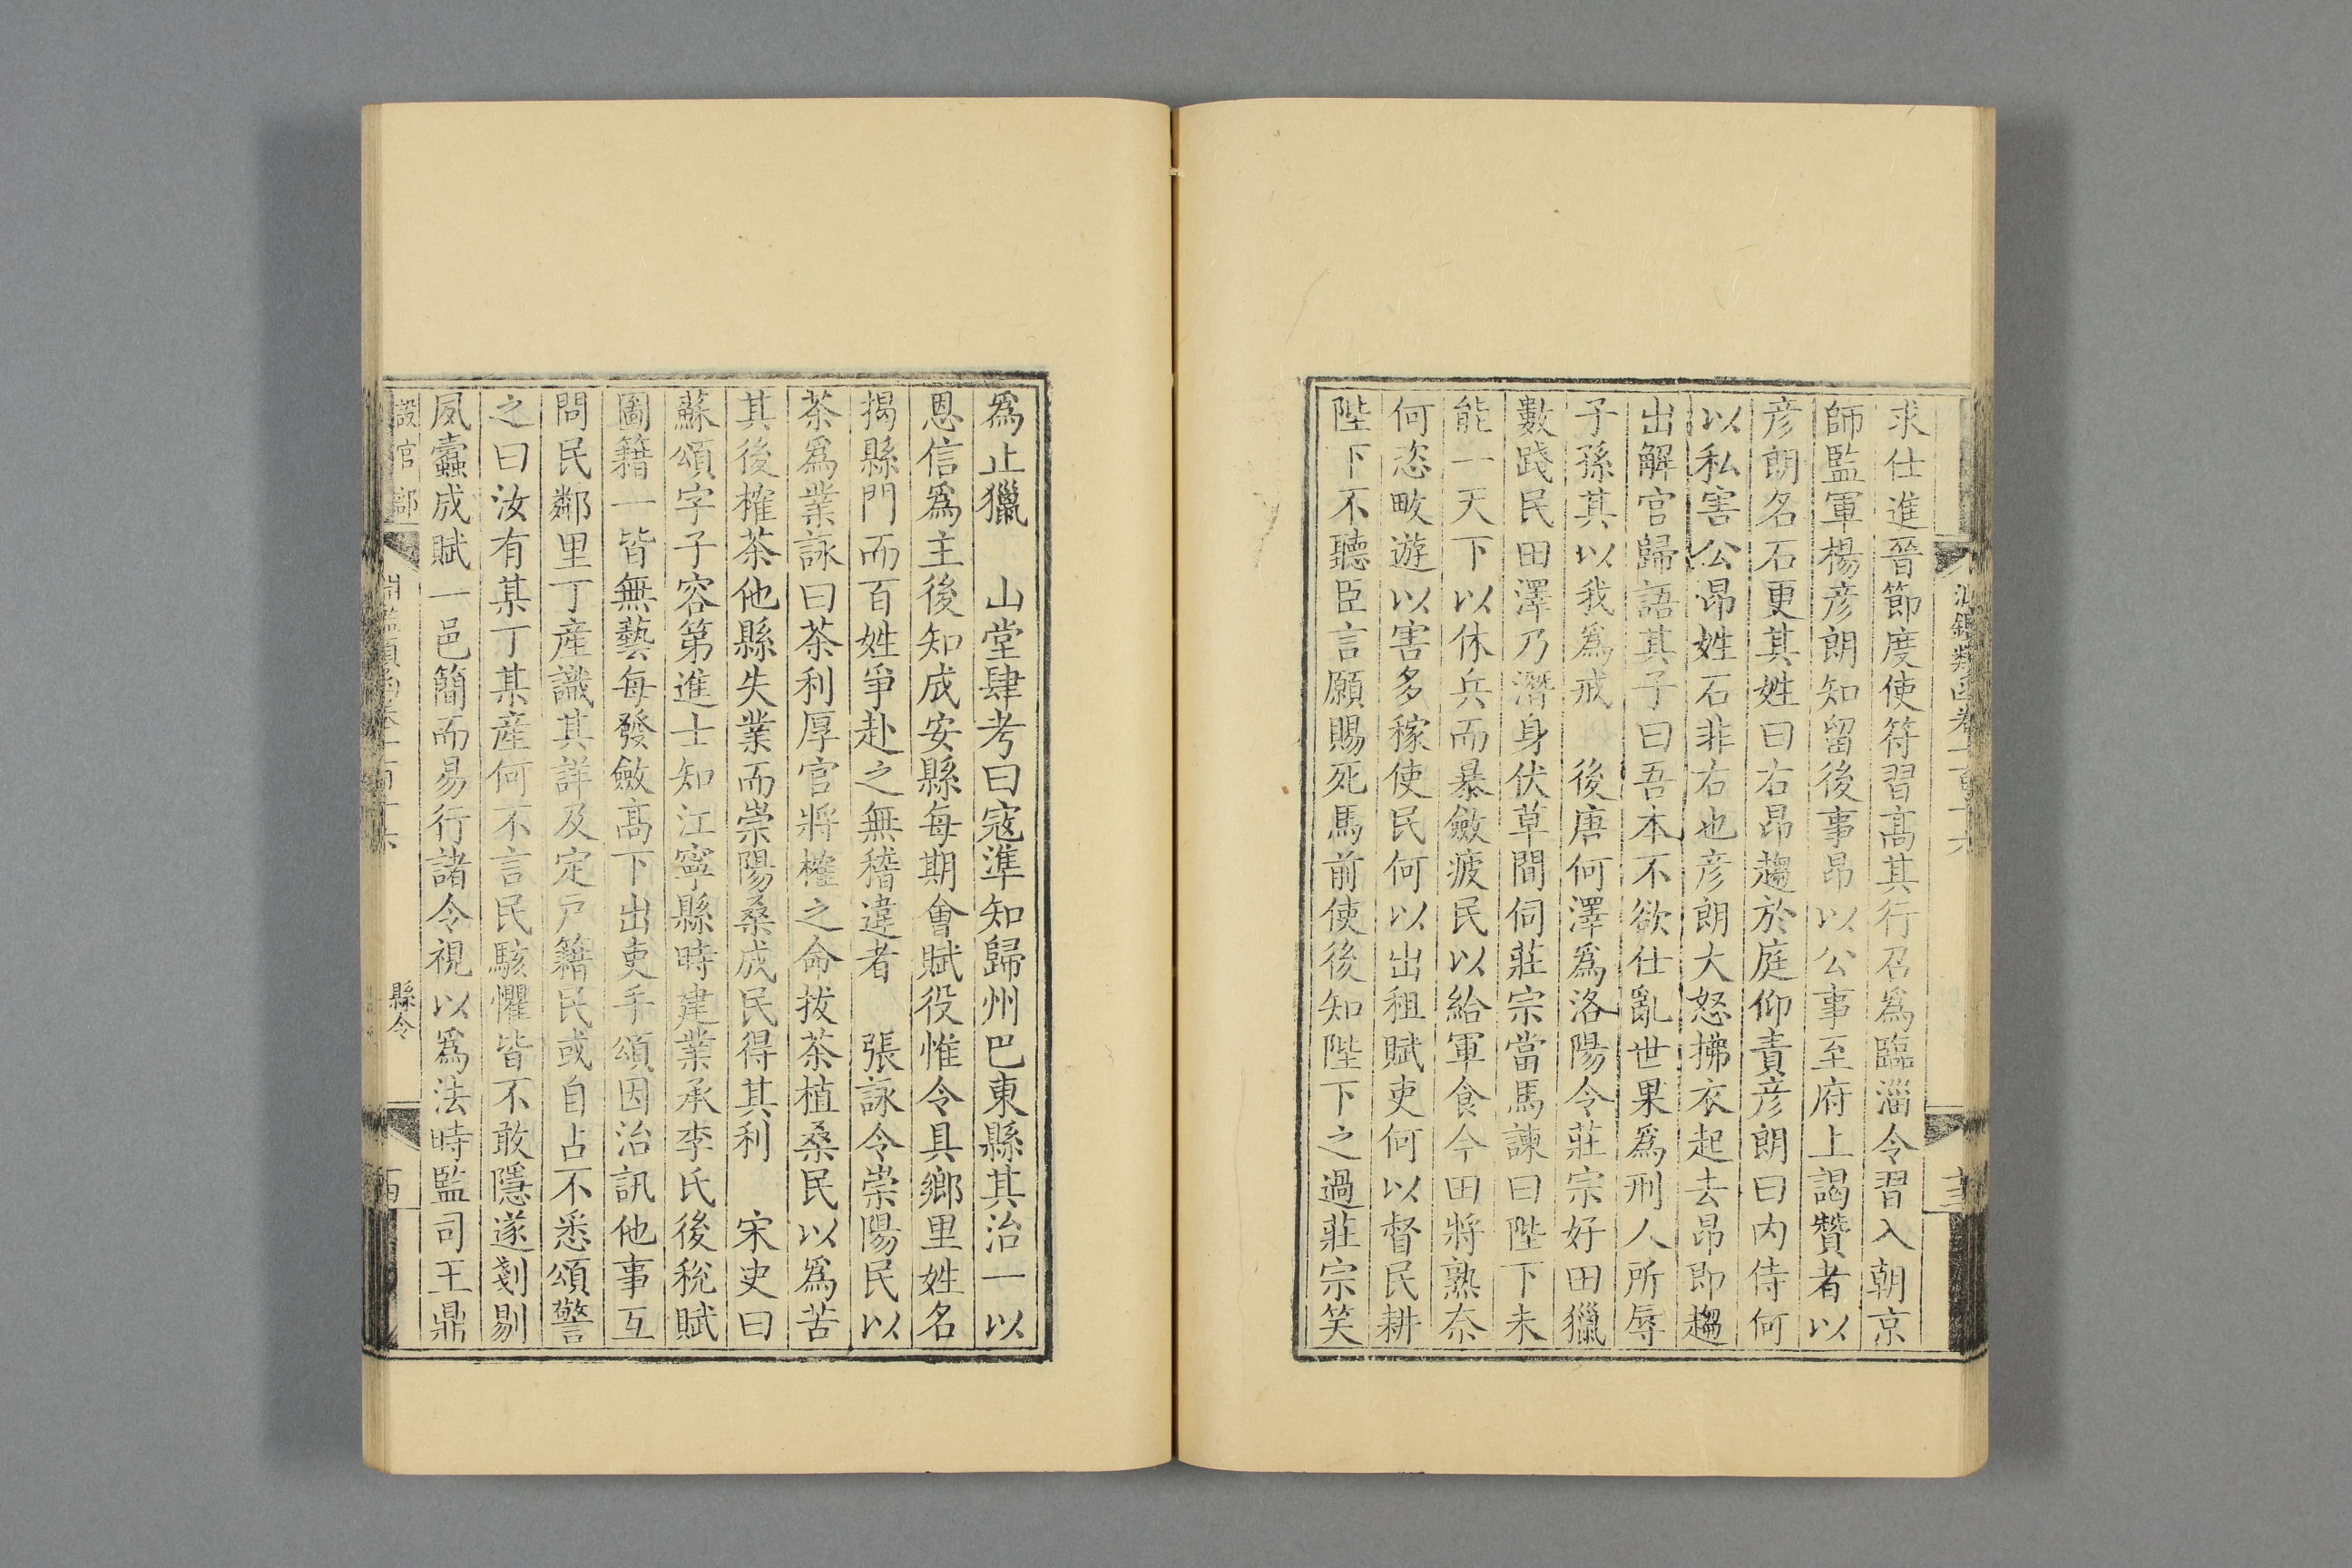 求仕進晉節度使符習高其行召爲臨淄令習入朝京
師監軍楊彦朗知留後事昂以公事至府上謁贊者以
彦朗名石更其姓曰右昂趨於庭仰責彦朗曰内侍何
以私害公昂姓石非右也彦朗大怒拂衣起去昂即趨
出解官歸語其子曰吾本不欲仕亂世果爲刑人所辱
子孫其以我爲戒　後唐何澤爲洛陽令莊宗好田獵
數踐民田澤乃潛身伏草間伺莊宗當馬諫曰陛下未
能一天下以休兵而暴斂疲民以給軍食今田將熟奈
何恣畋遊以害多稼使民何以出租賦吏何以督民耕
陛下不聽臣言願賜死馬前使後知陛下之過莊宗笑
爲止獵　山堂肆考曰寇準知歸州巴東縣其治一以
恩信爲主後知成安縣每期會賦役惟令具鄉里姓名
揭縣門而百姓爭赴之無稽違者　張詠令崇陽民以
茶爲業詠曰茶利厚官將榷之命拔茶植桑民以爲苦
其後榷茶他縣失業而崇陽桑成民得其利　宋史曰
蘇頌字子容第進士知江寧縣時建業承李氏後稅賦
圖籍一皆無藝每發斂高下出吏手頌因治訊他事互
問民鄰里丁產識其詳及定戸籍民或自占不悉頌警
之曰汝有某丁某産何不言民駭懼皆不敢隱遂剗剔
夙蠹成賦一邑簡而易行諸令視以爲法時監司王鼎
設官部
縣令